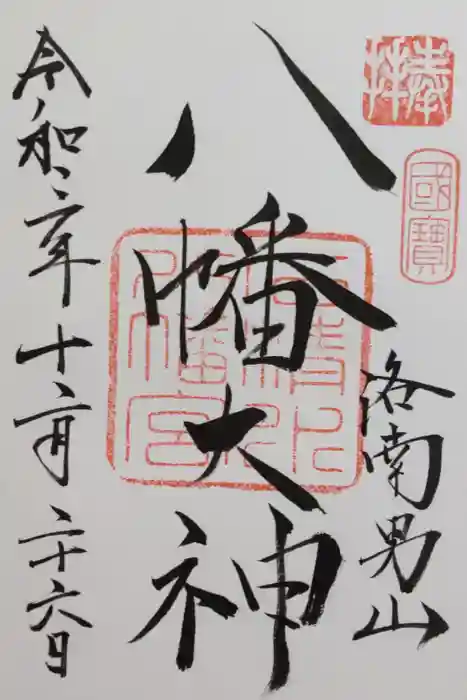 奉拝
國寶
洛南男山
八幡大神
石清水八幡宮
令和二年十二月二十六日